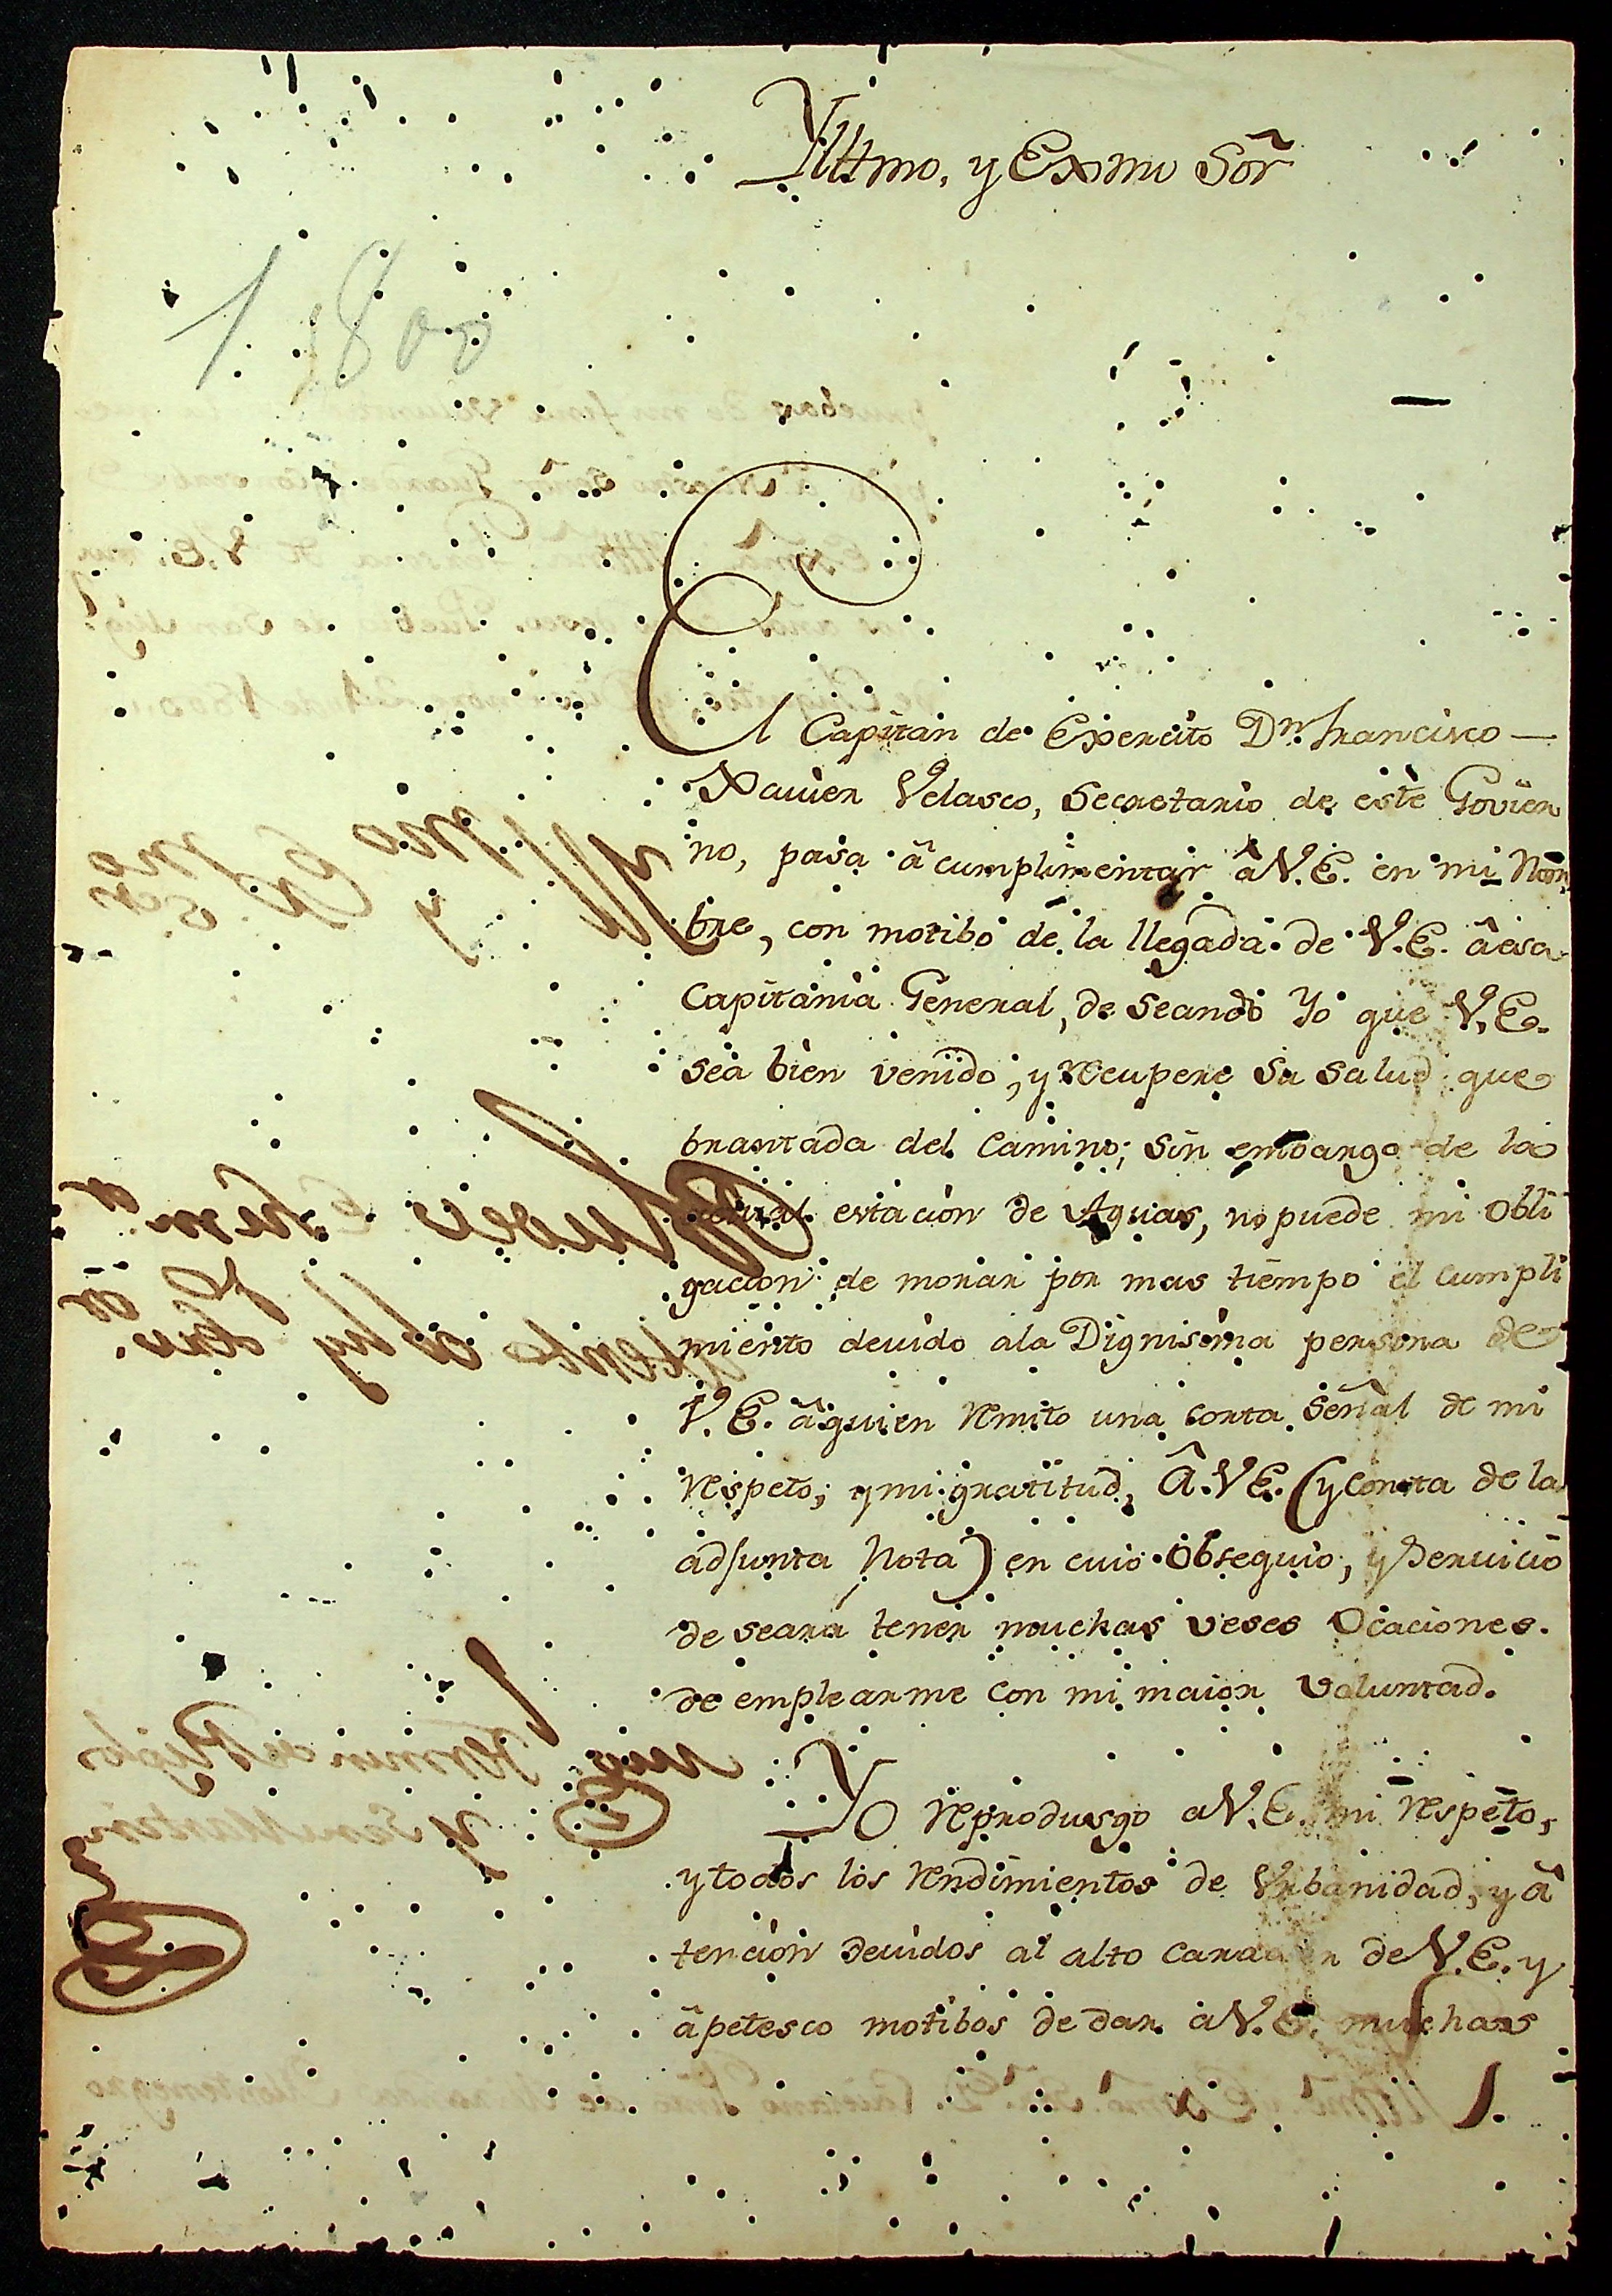 Ylltmo, y Exmo Sõr
1800
El Capitan de Exercito Dn. Francisco —
Xavier Velasco, Secretario de este Govier
no, pasa â cumplimentar âV.E. en mi Nom
bre, con motibo de la llegada de V.E. â esa
Capitania General, de seando Yo que V.E.
sea bien venido, y recupere su salud que
brantada del camino; sin embargo de la
actual estacion de Aguas, no puede mi obli
gacion de morar por mas tiempo el cumpli
miento devido ala Dignisima persona de
V.E. â quien remito una corta señal de mi
respeto, y mi gratitud, Â. V E. (y consta de la
adjunta Nota) en cuio Obsequio, y Servicio
de seara tener muchas veses Ocaciones.
de emplearme con mi maior voluntad.
Yo reprodusgo aV.E. mi respeto,
y todos los rendimientos de Vrbanidad, y â
tencion devidos al alto caracter de V.E. y
âpetesco motibos de dar aV.E. muchas